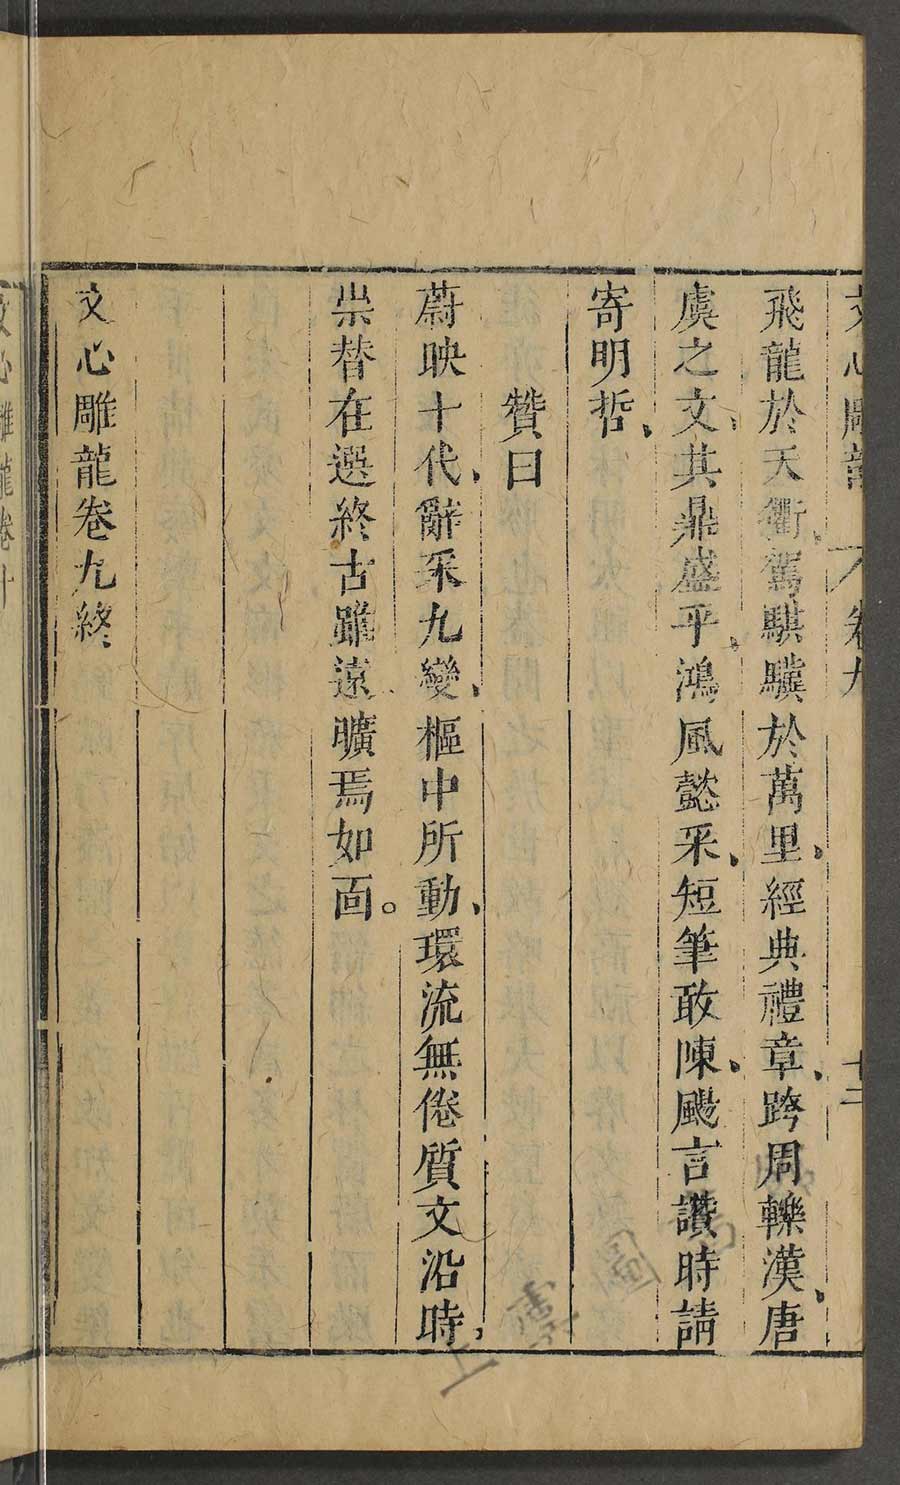 文心雕龍 卷九 十二
飛龍於天衢、駕騏驥於萬里、經典禮章、跨周轢漢、唐
虞之文、其鼎盛乎、鴻風懿采、短筆敢陳、颺言讚時請
寄明哲、
贊曰
蔚映十代、辭采九變、樞中所動、環流無倦質文沿時、
崇替在選終古雖遠曠焉如面。
文心雕龍卷九終
文心雕龍卷十